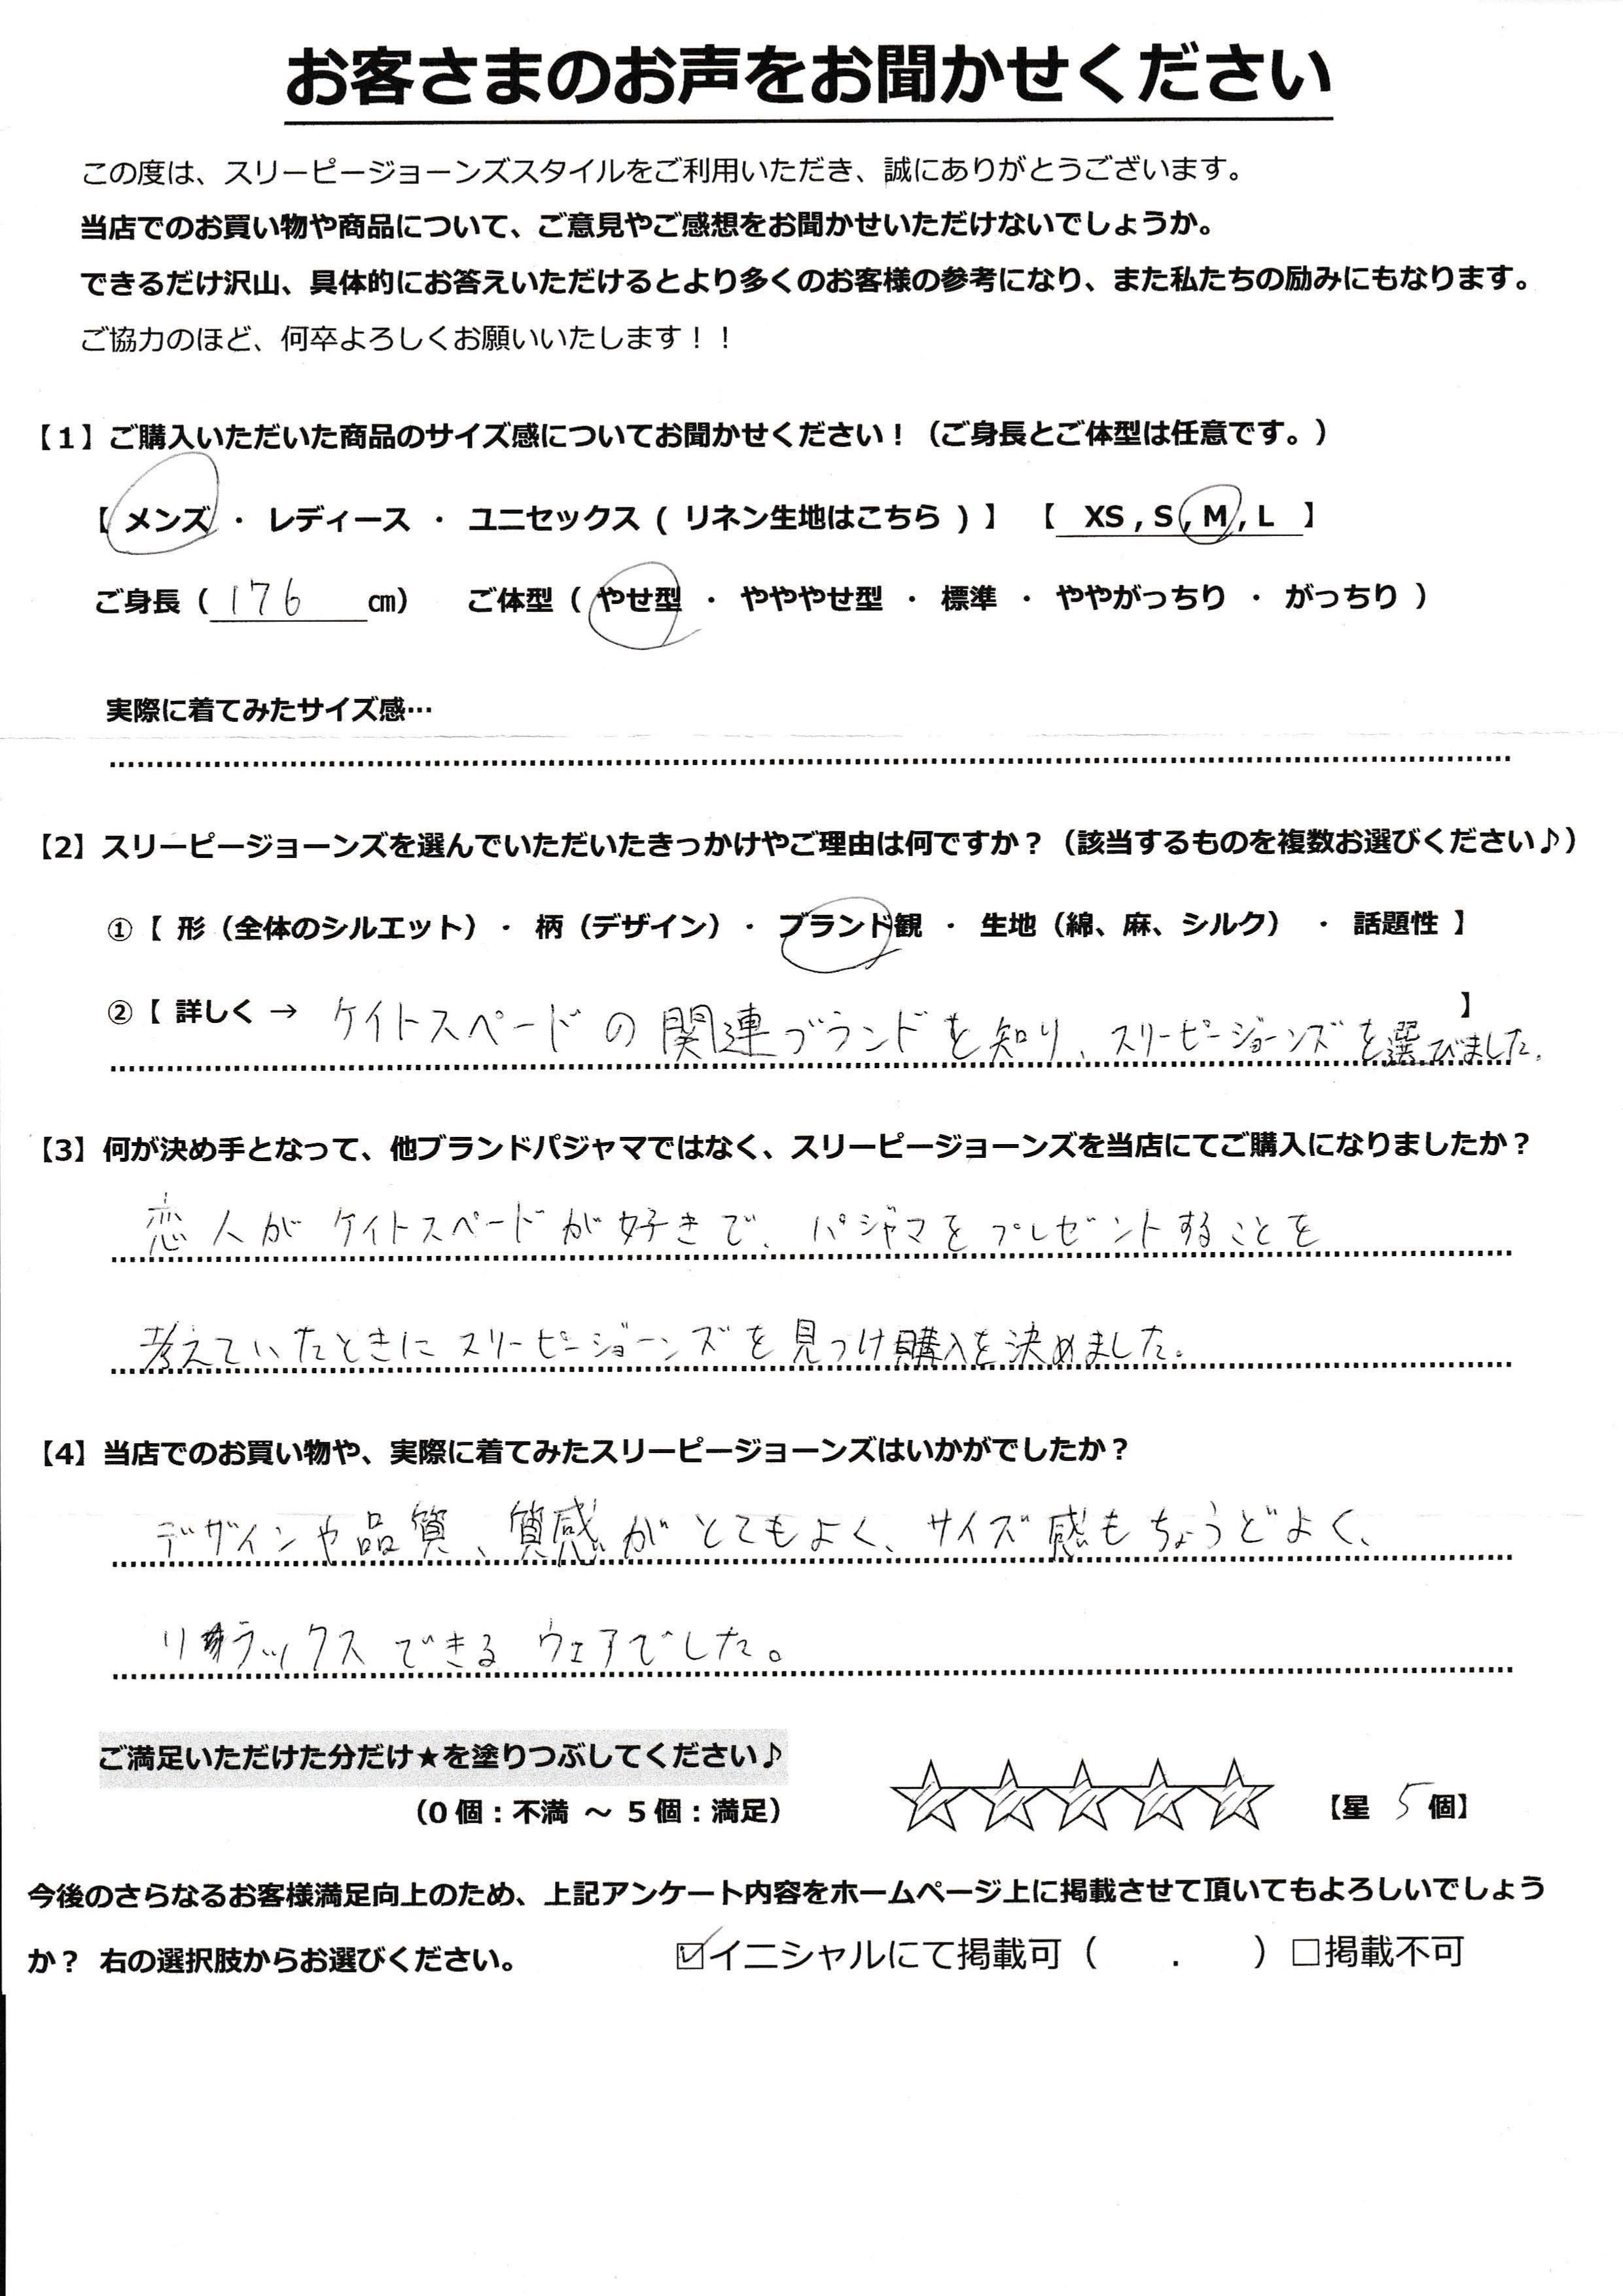 お客さまのお声をお聞かせください
この度は、スリーピージョーンズスタイルをご利用いただき、誠にありがとうございます。
当店でのお買い物や商品について、ご意見やご感想をお聞かせいただけないでしょうか。
できるだけ沢山、具体的にお答えいただけるとより多くのお客様の参考になり、また私たちの励みにもなります。
ご協力のほど、何卒よろしくお願いいたします！！
【1】ご購入いただいた商品のサイズ感についてお聞かせください！（ご身長とご体型は任意です。）
【 メンズ ・ レディース ・ ユニセックス ( リネン生地はこちら ) 】 【 XS , S , M , L 】
ご身長（ 176 ㎝） ご体型（ やせ型 ・ やややせ型 ・ 標準 ・ ややがっちり ・ がっちり ）
実際に着てみたサイズ感…
【2】スリーピージョーンズを選んでいただいたきっかけやご理由は何ですか？（該当するものを複数お選びください♪）
①【 形（全体のシルエット）・ 柄（デザイン）・ ブランド観 ・ 生地（綿、麻、シルク） ・ 話題性 】
②【 詳しく → ケイトスペードの関連ブランドを知り、スリーピージョーンズを選びました。 】
【3】何が決め手となって、他ブランドパジャマではなく、スリーピージョーンズを当店にてご購入になりましたか？
恋人がケイトスペードが好きで、パジャマをプレゼントすることを
考えていたときにスリーピージョーンズを見つけ購入を決めました。
【4】当店でのお買い物や、実際に着てみたスリーピージョーンズはいかがでしたか？
デザインや品質、質感がとてもよく、サイズ感もちょうどよく、
リラックスできるウェアでした。
ご満足いただけた分だけ★を塗りつぶしてください♪
（0 個：不満 ～ 5 個：満足） ☆☆☆☆☆ 【星 5 個】
今後のさらなるお客様満足向上のため、上記アンケート内容をホームページ上に掲載させて頂いてもよろしいでしょう
か？ 右の選択肢からお選びください。 ☑イニシャルにて掲載可（ . ）□掲載不可